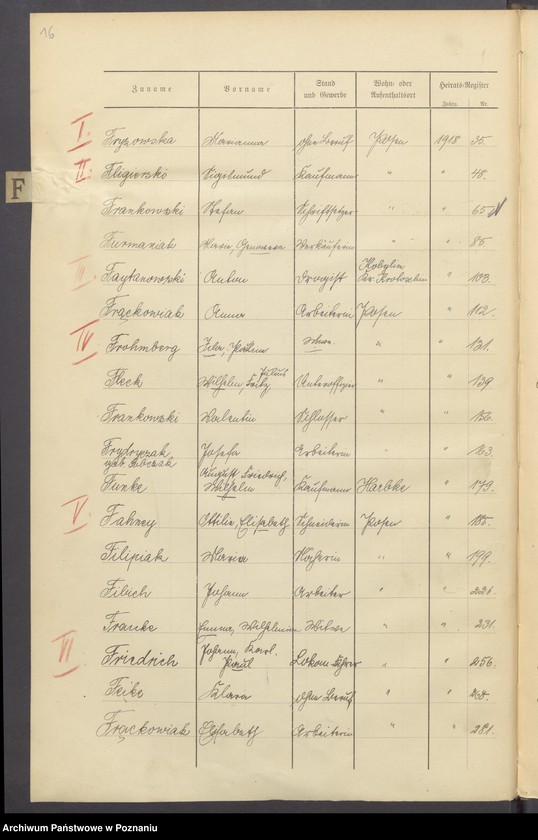 16
Zuname Vorname Stand und Gewerbe Wohn- oder Aufenthaltsort Heirats-Register
Jahrg. Nr.
F
I. Fryzowska Marianna ohne Beruf Posen 1918 35.
II. Fligierski Sigismund Kaufmann " " 48.
Frankowski Stefan Schriftsetzer " " 65
Furmaniak Maria, Genowefa Verkäuferin " " 85.
III. Faytanowski Anton Drogist Kobylin Kr. Krotoschin " 103.
Frąckowiak Anna Arbeiterin Posen " 112.
IV Frohmberg " " 131.
Fleck Wilhelm, Fritz Julius Unteroffizier " " 139
Frankowski Valentin Schlosser " "
Frydryczak Josefa Arbeiterin " " 163.
geb.
August Friedrich,
Funke Wilhelm Kaufmann " 179.
V. Fahney Ottilie, Elisabeth Schneiderin Posen " 185.
Filipiak Maria Näherin " " 199.
Filsich Johann Arbeiter " " 221.
Franke Emma, Wilhelmine Witwe " " 231.
VI Friedrich Johann, Karl. Paul Lokom. Führer " " 256.
Feike Klara ohne Beruf " "
Frąckowiak Elisabeth Arbeiterin " " 281.
Archiwum Państwowe w Poznaniu